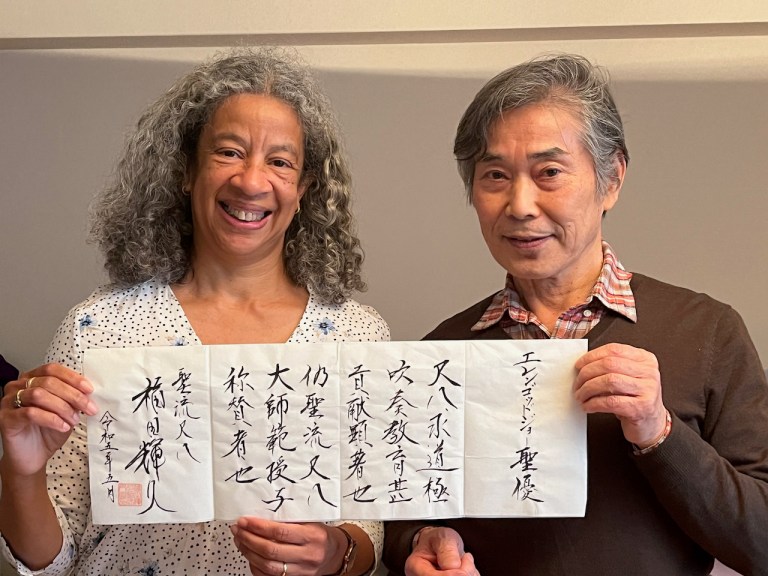 エレンコッドジョー聖優
尺八求道極
吹奏教育甚
貢献顕著也
仍聖流尺八
大師範授予
称賛者也
聖流尺八
福田輝久
令和五年五月